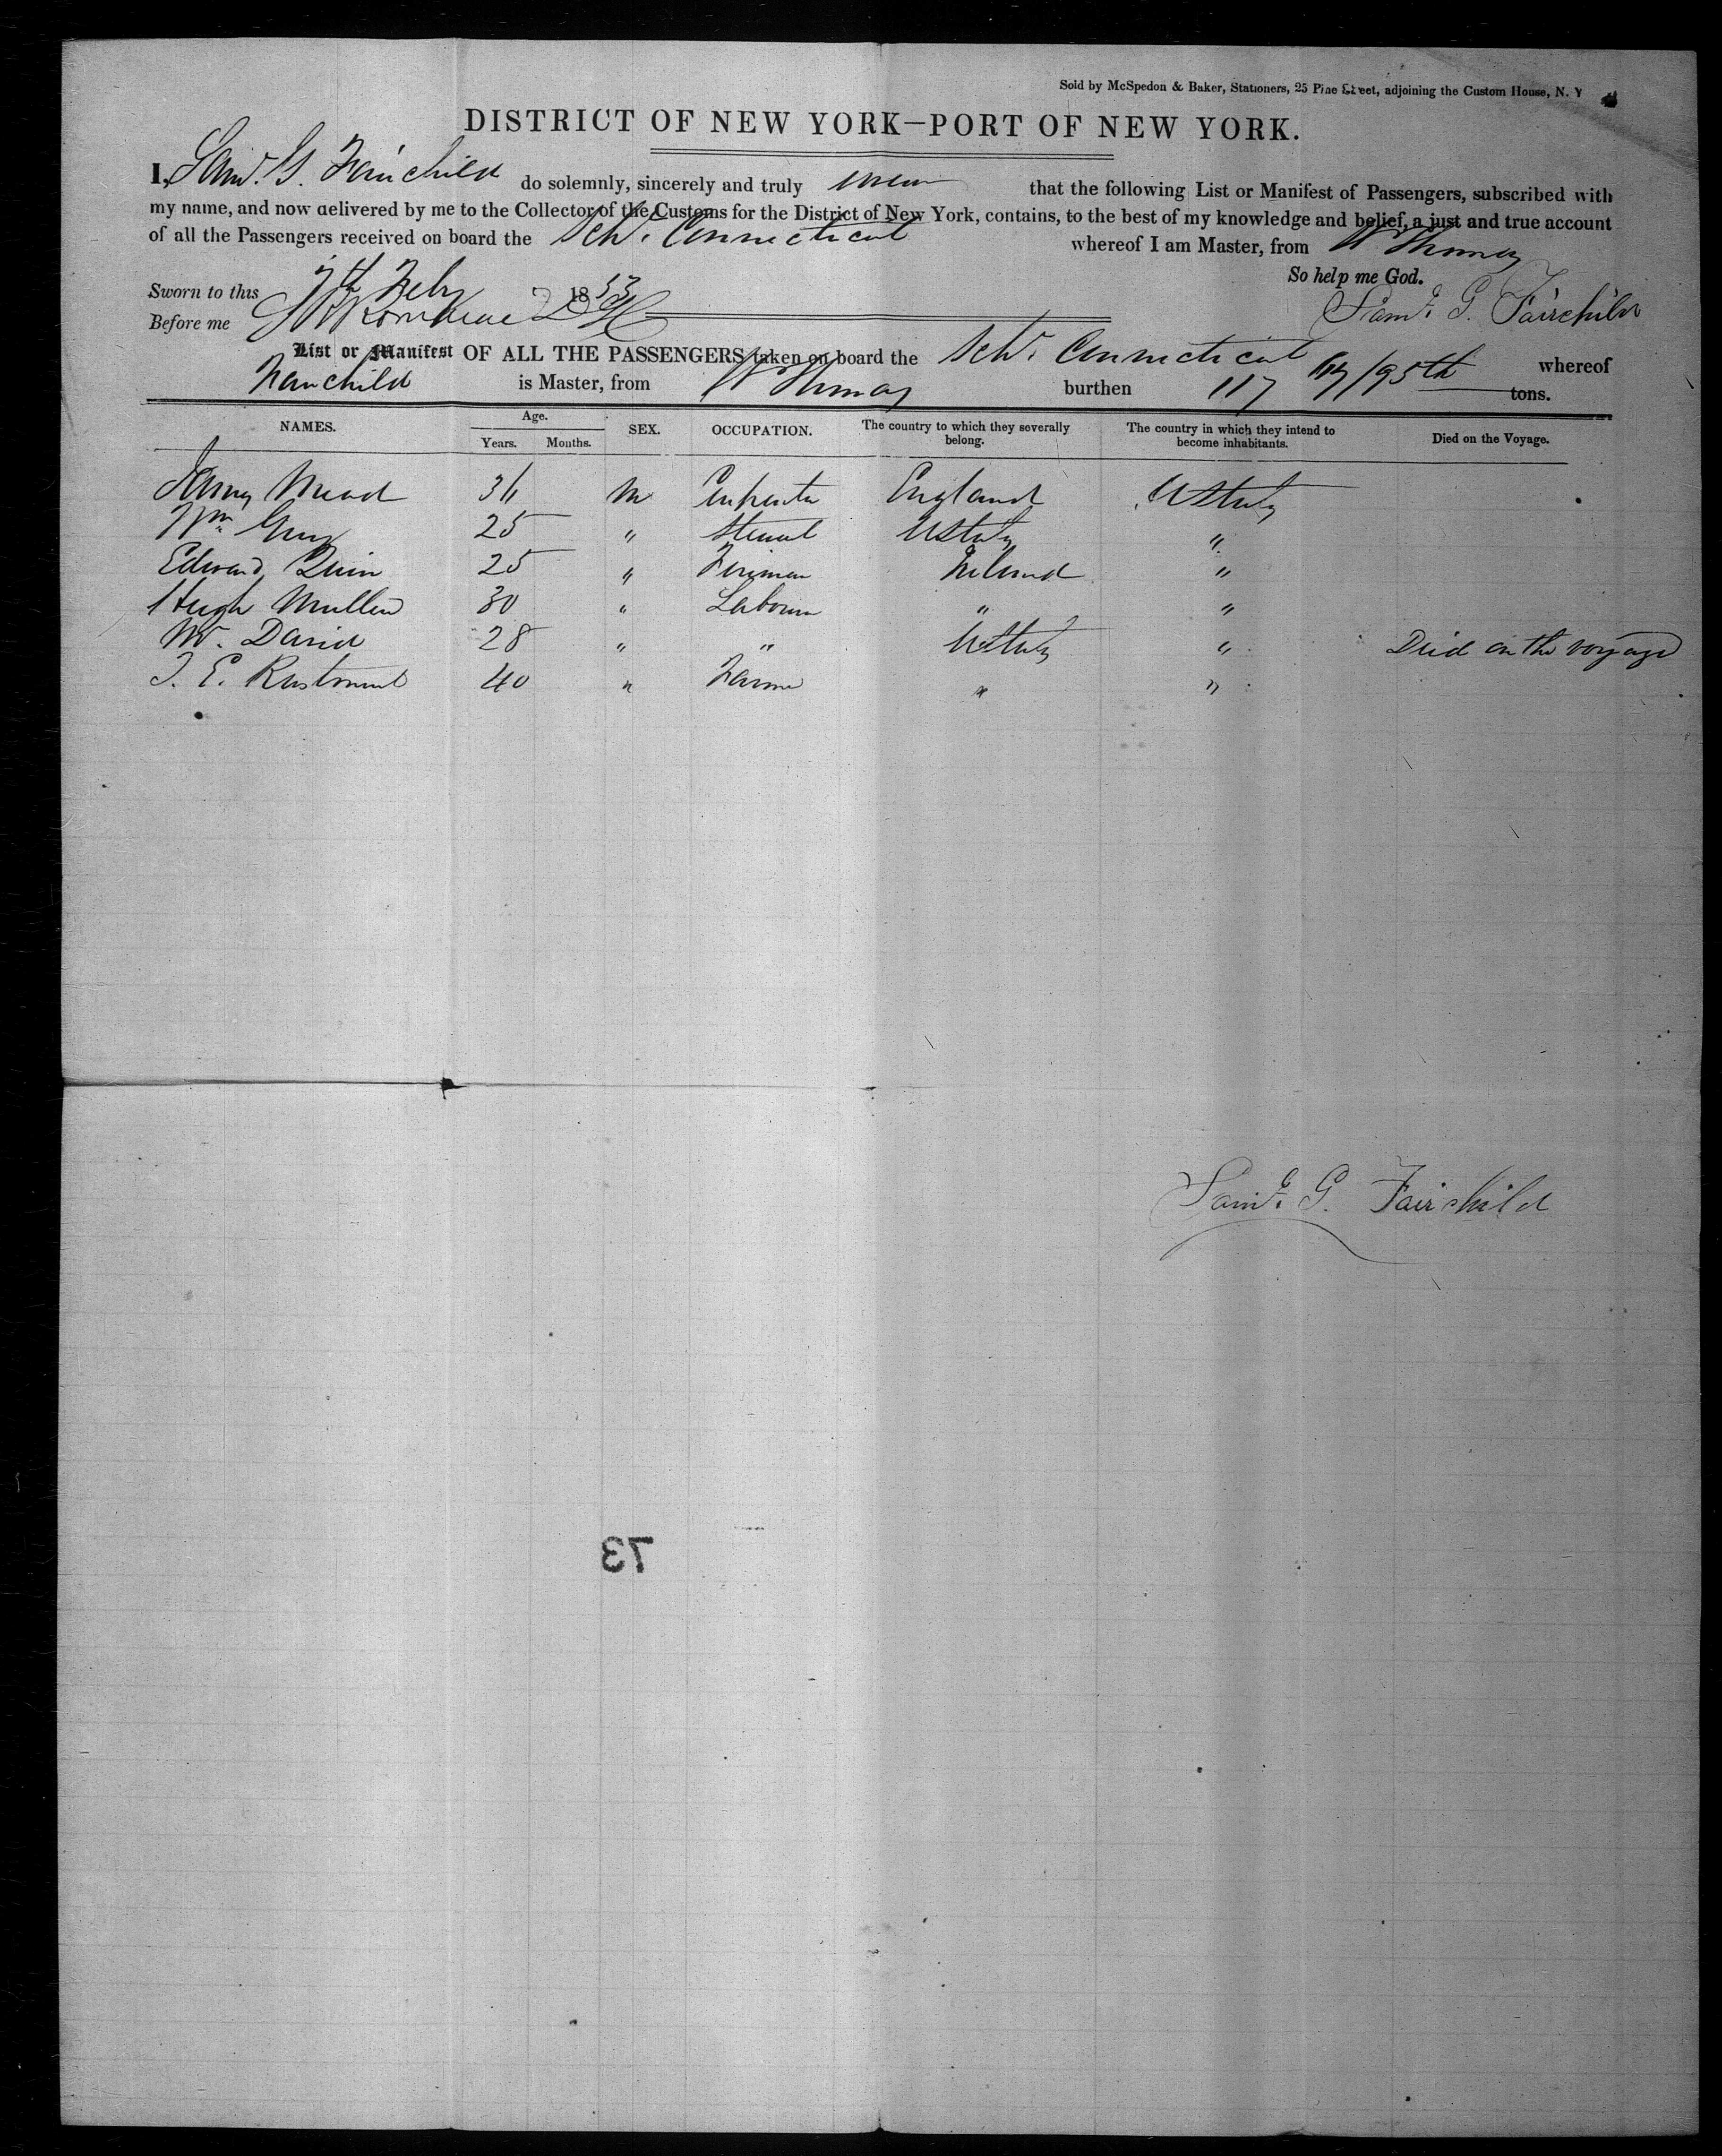 Sold by McSpedon & Baker, Stationers, 25 Pine Street, adjoining the Custom House, N. Y
DISTRICT OF NEW YORK—PORT OF NEW YORK.
I, Saml. G. Fairchild do solemnly, sincerely and truly swear that the following List or Manifest of Passengers, subscribed with
my name, and now delivered by me to the Collector of the Customs for the District of New York, contains, to the best of my knowledge and belief, a just and true account
of all the Passengers received on board the Schr. Connecticut whereof I am Master, from St Thomas
So help me God.
Sworn to this 7th Feby 1853
Saml. G. Fairchild
Before me
List or Manifest OF ALL THE PASSENGERS taken on board the Schr. Connecticut whereof
Fairchild is Master, from St Thomas burthen 117 /95th tons.
NAMES. Age. Years. Months. SEX. OCCUPATION. The country to which they severally belong. The country in which they intend to become inhabitants. Died on the Voyage.
Mead M Carpenter England UStates
Wm 25 " Steward UStates "
Edward Quin 25 " Fireman Ireland "
Hugh Mullen 30 " Labourer " "
David 28 " " UStates " Died on the voyage
40 " Farmer " "
Saml. G. Fairchild
73